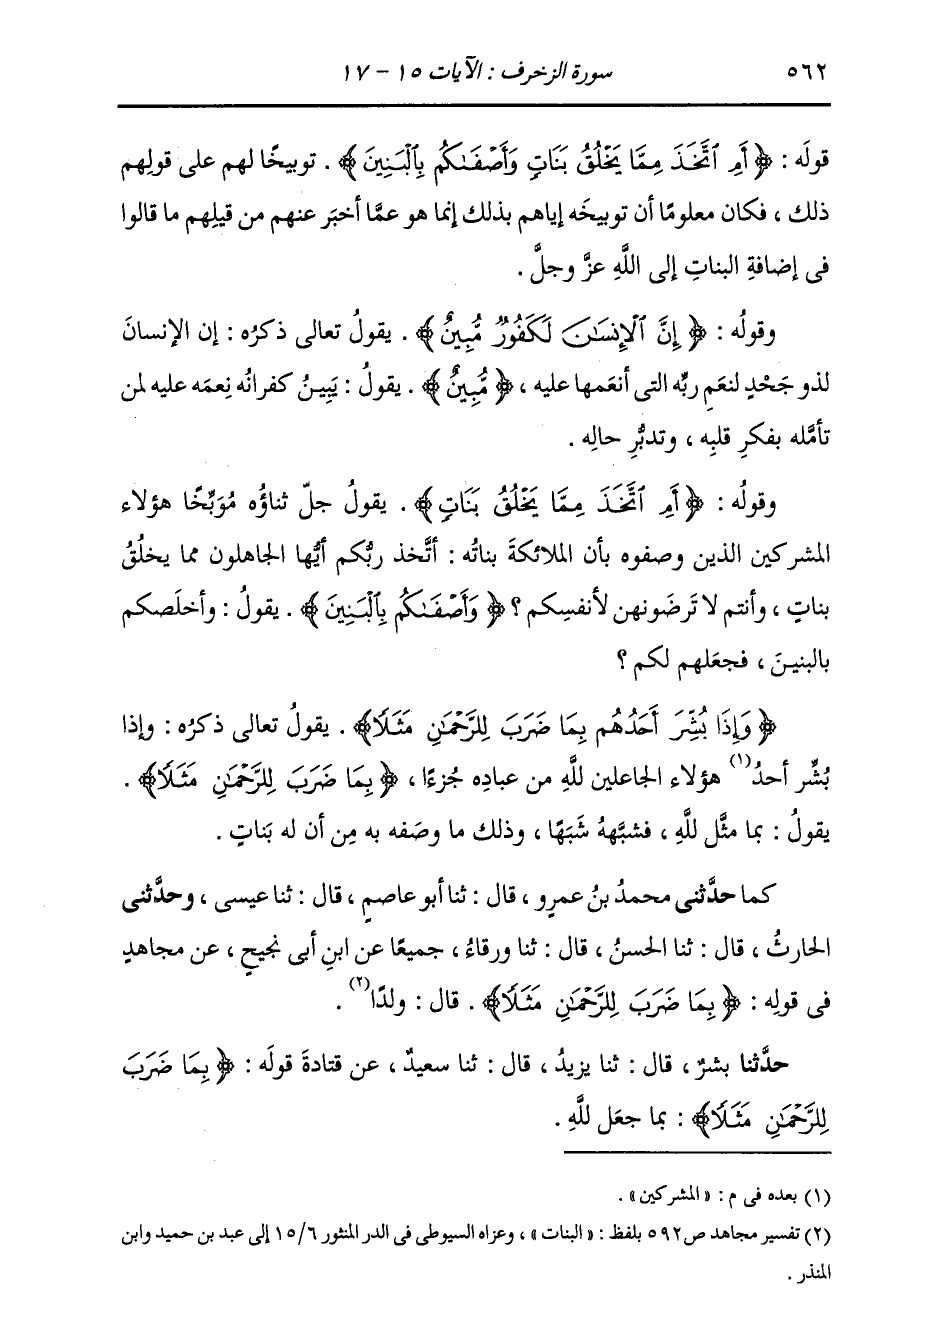 ٥٦٢ سورة الزخرف : الآيات ١٥ - ١٧
قولَه : ﴿ أَمِ ٱتَّخَذَ مِمَّا يَخْلُقُ بَنَاتٍ وَأَصْفَىٰكُم بِٱلْبَنِينَ ﴾ . توبيخًا لهم على قولِهم
ذلك ، فكان معلومًا أن توبيخَه إياهم بذلك إنما هو عمَّا أخبَر عنهم من قيلِهم ما قالوا
فى إضافةِ البناتِ إلى اللَّهِ عزَّ وجلَّ .
وقولُه : ﴿ إِنَّ ٱلْإِنسَٰنَ لَكَفُورٌ مُّبِينٌ ﴾ . يقولُ تعالى ذكرُه : إن الإنسانَ
لذو جَحْدٍ لنعَمِ ربِّه التى أنعَمها عليه ، ﴿ مُّبِينٌ ﴾ . يقولُ : يَبِينُ كفرانُه نِعمَه عليه لمن
تأمَّله بفكرِ قلبِه ، وتدبُّرِ حالِه .
وقولُه : ﴿ أَمِ ٱتَّخَذَ مِمَّا يَخْلُقُ بَنَاتٍ ﴾ . يقولُ جلّ ثناؤُه مُوَبِّخًا هؤلاء
المشركين الذين وصفوه بأن الملائكةَ بناتُه : أتَّخذ ربُّكم أيُّها الجاهلون مما يخلُقُ
بناتٍ ، وأنتم لا تَرضَونهن لأنفسِكم ؟ ﴿ وَأَصْفَىٰكُم بِٱلْبَنِينَ ﴾ . يقولُ : وأخلَصكم
بالبنينَ ، فجعَلهم لكم ؟
﴿ وَإِذَا بُشِّرَ أَحَدُهُم بِمَا ضَرَبَ لِلرَّحْمَٰنِ مَثَلًا ﴾ . يقولُ تعالى ذكرُه : وإذا
بُشِّر أحدُ(١) هؤلاء الجاعلين للَّهِ من عبادِه جُزءًا ، ﴿ بِمَا ضَرَبَ لِلرَّحْمَٰنِ مَثَلًا ﴾ .
يقولُ : بما مثَّل للَّهِ ، فشبَّههُ شَبَهًا ، وذلك ما وصَفه به مِن أن له بَناتٍ .
كما حدَّثنى محمدُ بنُ عمرٍو ، قال : ثنا أبو عاصمٍ ، قال : ثنا عيسى ، وحدَّثنى
الحارثُ ، قال : ثنا الحسنُ ، قال : ثنا ورقاءُ ، جميعًا عن ابنِ أبى نجيحٍ ، عن مجاهدٍ
فى قولِه : ﴿ بِمَا ضَرَبَ لِلرَّحْمَٰنِ مَثَلًا ﴾ . قال : ولدًا(٢) .
حدَّثنا بشرٌ ، قال : ثنا يزيدُ ، قال : ثنا سعيدٌ ، عن قتادةَ قولَه : ﴿ بِمَا ضَرَبَ
لِلرَّحْمَٰنِ مَثَلًا ﴾ : بما جعَل للَّهِ .
(١) بعده فى م : «المشركين» .
(٢) تفسير مجاهد ص ٥٩٢ بلفظ : «البنات» ، وعزاه السيوطى فى الدر المنثور ١٥/٦ إلى عبد بن حميد وابن
المنذر .